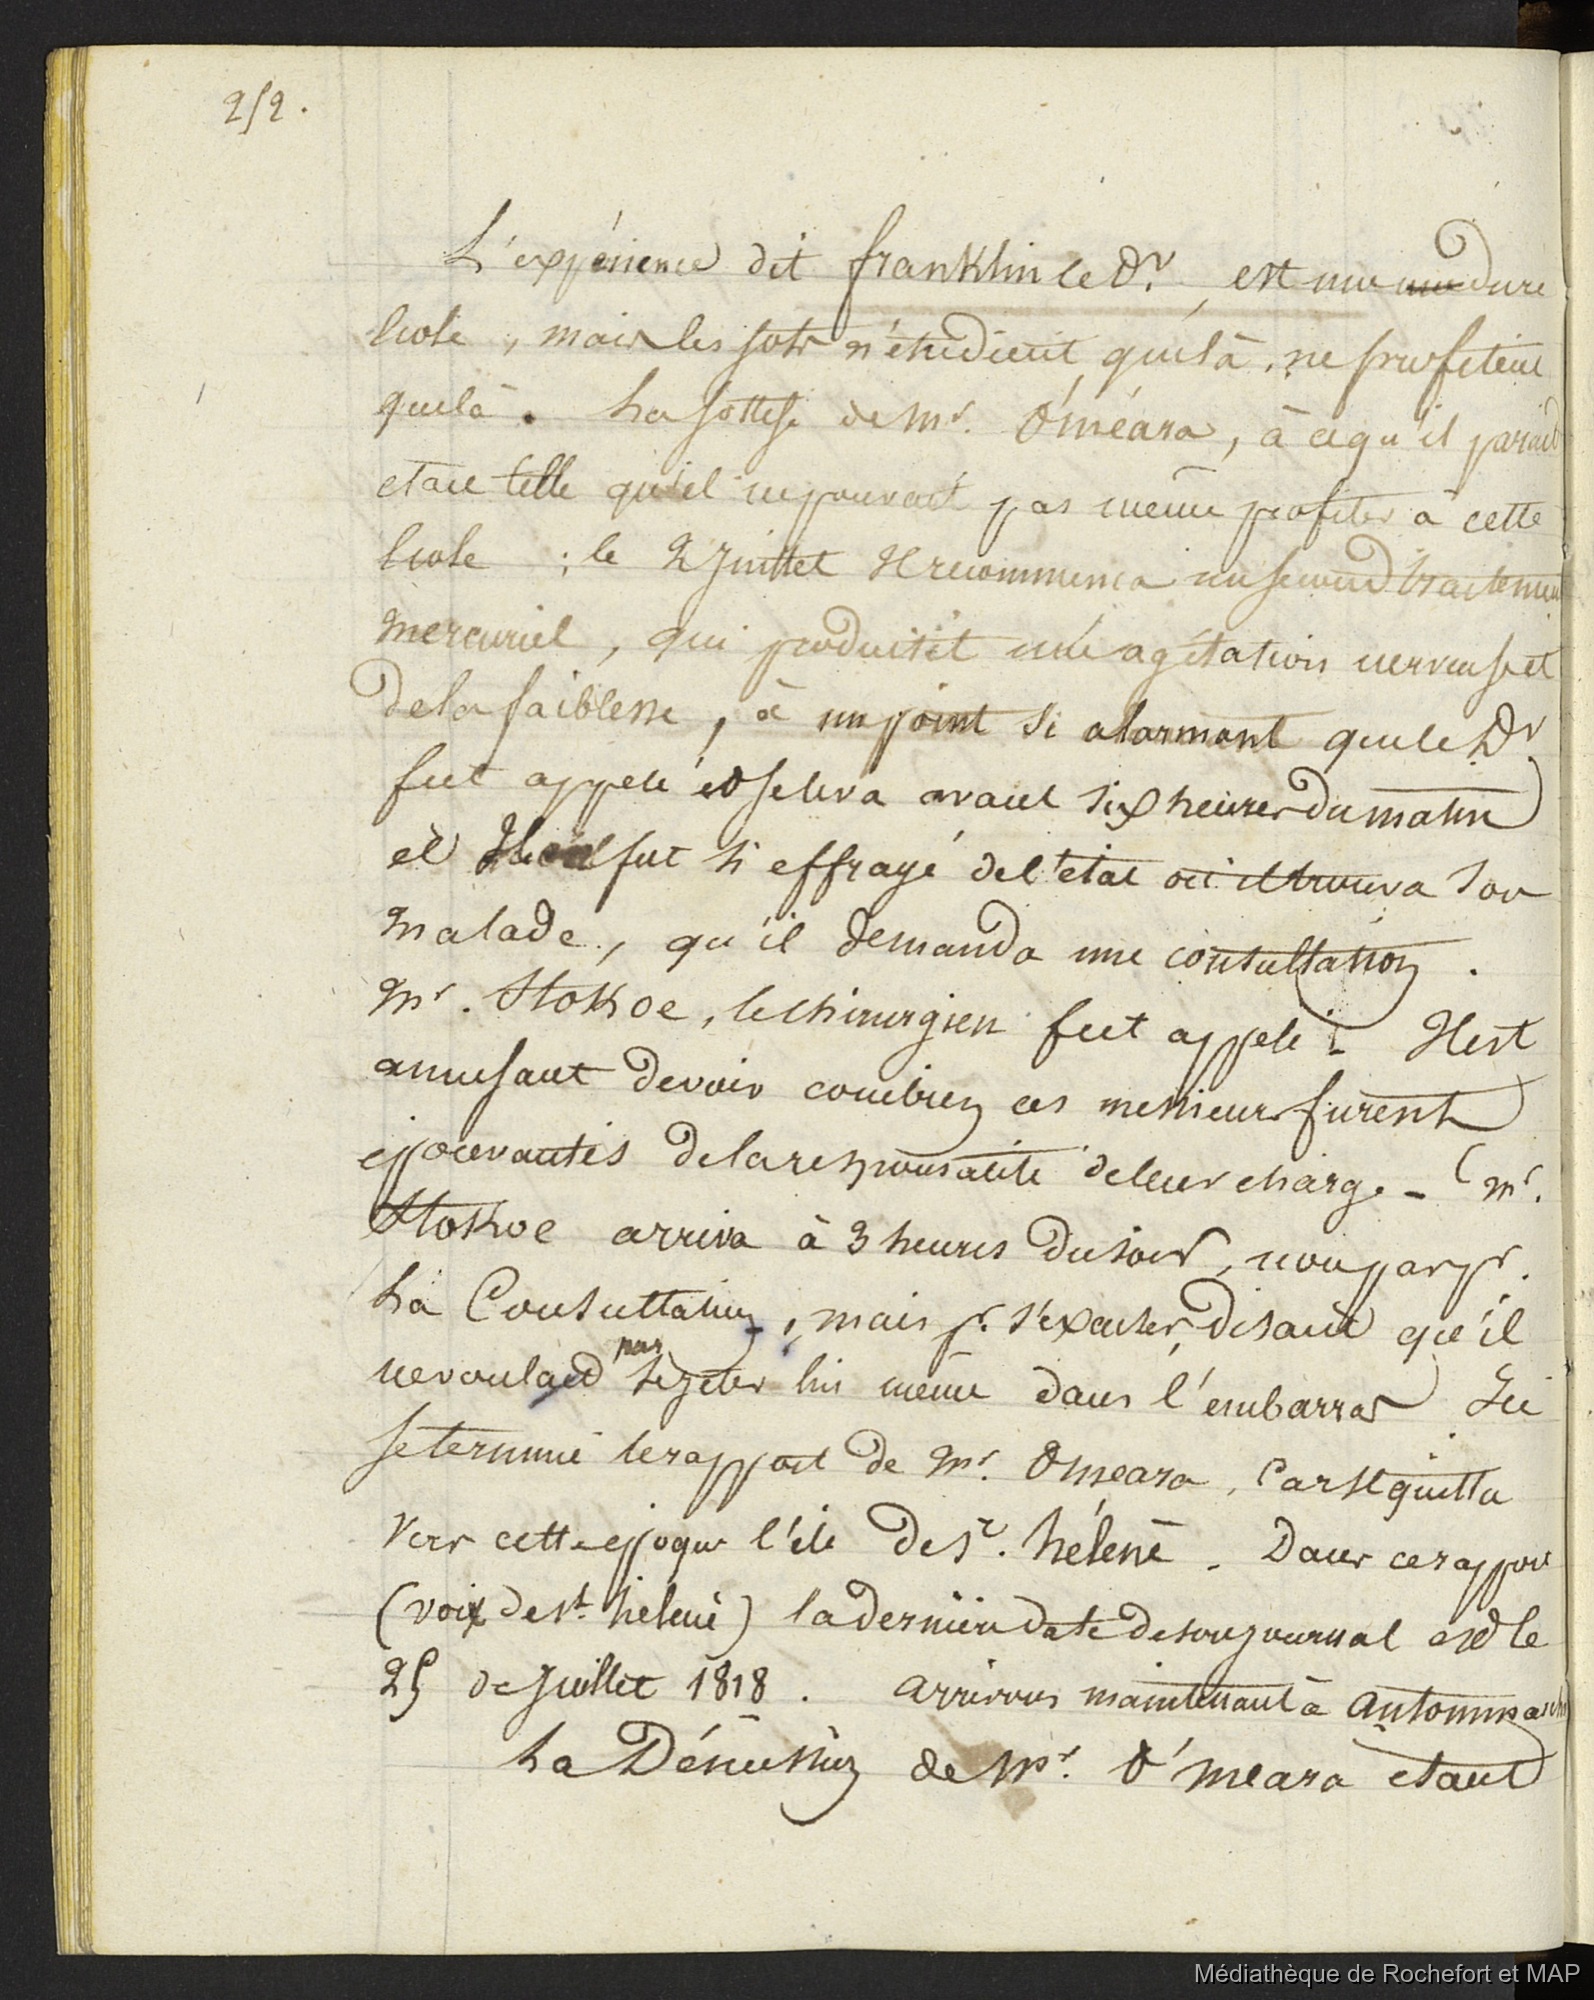 252.
L'expérience dit franklin le Dr., est une une dure
école, mais les sots n'étudient que là, ne profitent
que là. La sottise de Mr. O'méara, à ce qu'il parait
etait telle qu'il ne pouvait pas même profiter à cette
école ; le 2 juillet Il recommença un second traitement
mercuriel, qui produisit une agitation nerveuse et
de la faiblesse, à un point si alarmant que le Dr
fut appelé et se leva avant six heures du matin
et Il fut si effrayé de l'état où il trouva son
malade, qu'il demanda une consultation.
Mr. Stokoe, le chirurgien fut appelé. Il est
amusant de voir combien ces messieurs furent
epouvantés de la responsabilité de leur charge - (mr.
Stokoe arriva à 3 heures du soir, non par pr.
La Consultation, mais pr. s'excuser, disant qu'il
ne voulait pas se jeter lui même dans l'embarras) Ici
se termine le rapport de Mr. O'meara, Car Il quitta
vers cette epoque l'ile de St. héléne. Dans ce rapport
(voix de st. hélene) la derniere date de son journal est le
25 de Juillet 1818. Arrivons maintenant à Antommarchi
La Démission de Mr. O'meara etant
Médiathèque de Rochefort et MAP